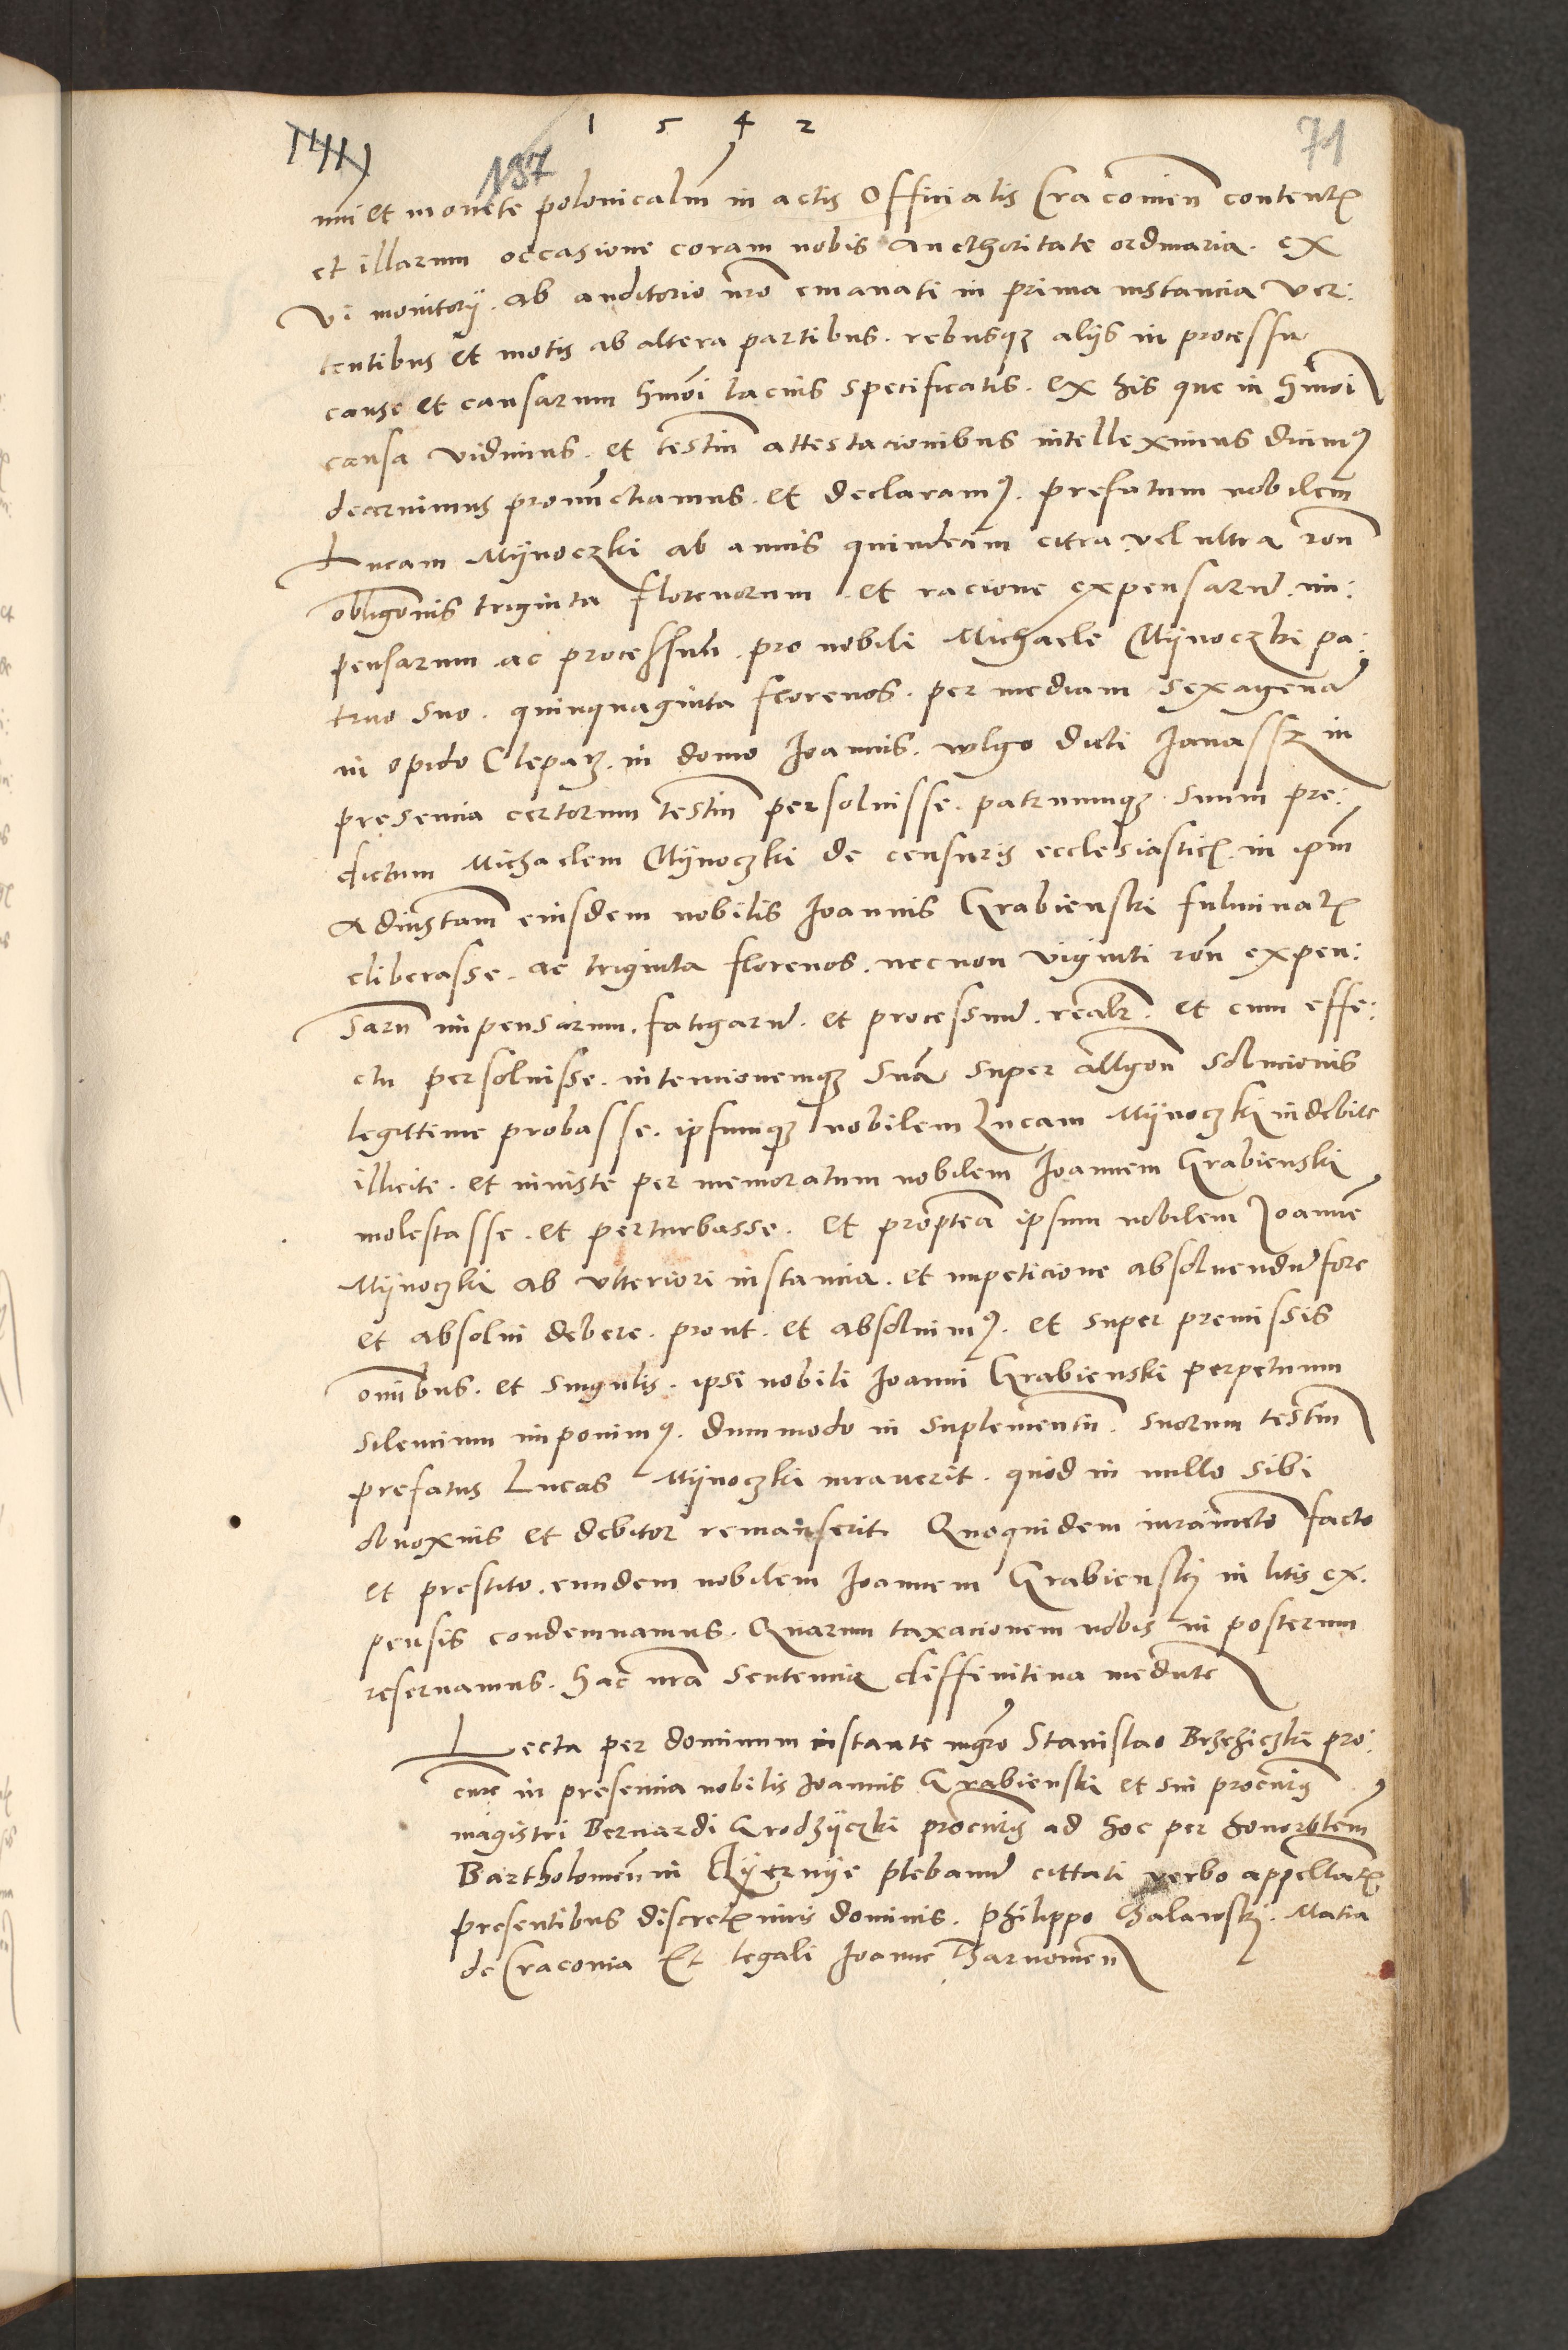 1542
71
137
mi et monete polonicalm in actis Officialis Cracovien content
et illarum occasione coram nobis Aucthoritate ordinaria. ex
vi monitorij. ab auditorio nro emanati in prima instancia ver:
tentibus et motis ab altera partibus. rebusqz alijs in processu
cause et causarum hmoi lacius specificatis. ex his que in hmoi
causa vidimus. et testiu attestacionibus intelleximus dicimus
decernimus pronunctiamus. et declaramus. prefatum nobilem
Lucam Mijnoczki ab annis quindecim citra vel ultra ron
obligonis triginta florenorum. et racione expensaru. im:
pensarum. ac processuu. pro nobili Michaele Mijnoczki pa:
truo suo. quinquaginta florenos. per mediam sexagena
in opido Clepaz. in domo Joannis. wlgo dicti Janassz in
presencia certorum testiu persolvisse. patruumqz. suum pre:
dictum Michaelem Mijnoczki de censuris ecclesiastic. in ipm
ad instam eiusdem nobilis Joannis Grabienski fulminat
eliberasse. ac triginta florenos. necnon viginti ron expen:
saru impensarum. fatigaru. et processuu. realr. et cum effe:
ctu persolvisse. intencionemqz sua super allgon solucionis
legittime probasse. ipsumqz nobilem Lucam Mijnoczki indebite
illicite. et iniuste per memoratum nobilem Joannem Grabienski
molestasse. et perturbasse. et proptea ipsum nobilem Joanne
Mijnoczki ab ulteriori instancia. et impeticione absolvendu fore
et absolvi debere. prout. et absolvimus. et super premissis
omibus. et singulis. ipsi nobili Joanni Grabienski perpetuum
silencium imponimus. dummodo in suplementu. suorum testiu
prefatus Lucas Mijnoczki iuraverit. quod in nullo sibi
obnoxius et debitor remanserit. Quoquidem iuramento facto
et prestito. eundem nobilem Joannem Grabiensky in litis ex.
pensis condemnamus. Quarum taxacionem nobis in posterum
reservamus. hac nra sentencia diffinitiva mediante
Lecta per dominum instante mgro Stanislao Brzeziczki pro:
cure in presencia nobilis Joannis Grabienski et sui procuris
magistri Bernardi Grodzijczki procuris ad hoc per honorblem
Bartholomeu in plebanu cittati verbo appellat
presentibus discretis viris dominis. Philippo Chalawsky. Matia
de Craconia Et legali Joanne Tharnowien